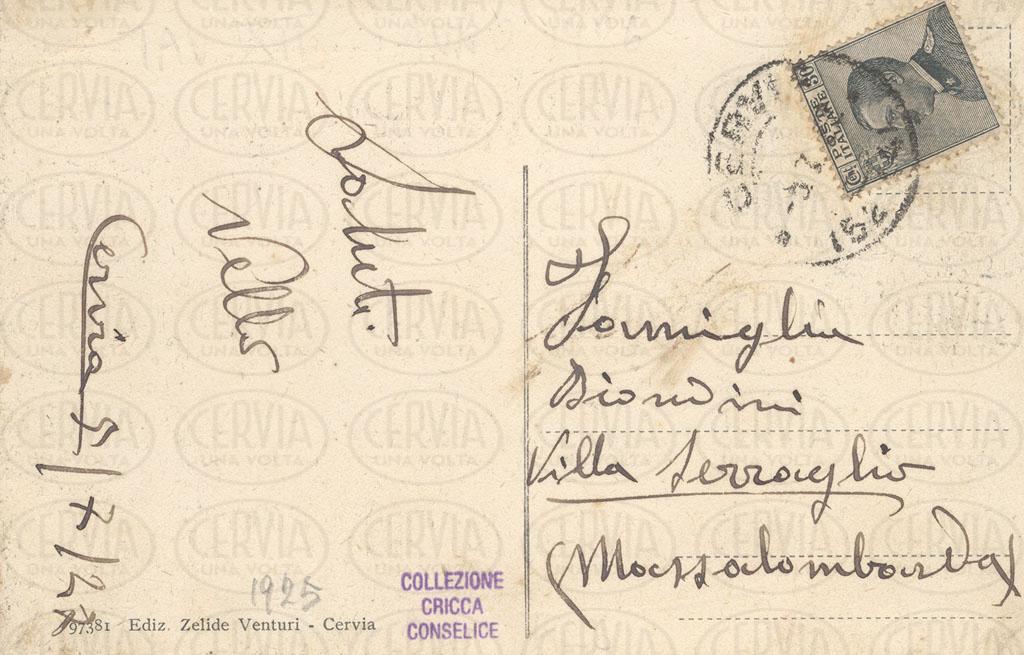 Saluti
Nello
Cervia 5/7/27
1925
97381 Ediz. Zelide Venturi - Cervia
COLLEZIONE
CRICCA
CONSELICE
POSTE
ITALIANE 30
CERVIA
Famiglia
Biondini
Villa Serraglio
(Massalombarda)
CERVIA
UNA VOLTA